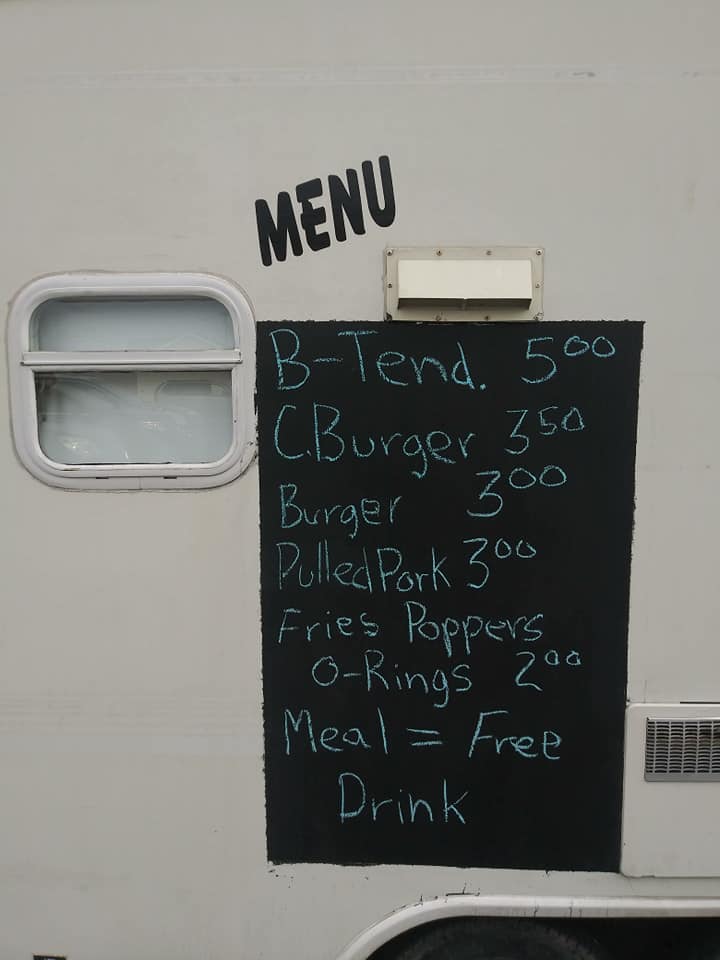 MENU
B-Tend. 5⁰⁰
C.Burger 3⁵⁰
Burger 3⁰⁰
Pulled Pork 3⁰⁰
Fries Poppers
O-Rings 2⁰⁰
Meal = Free
Drink